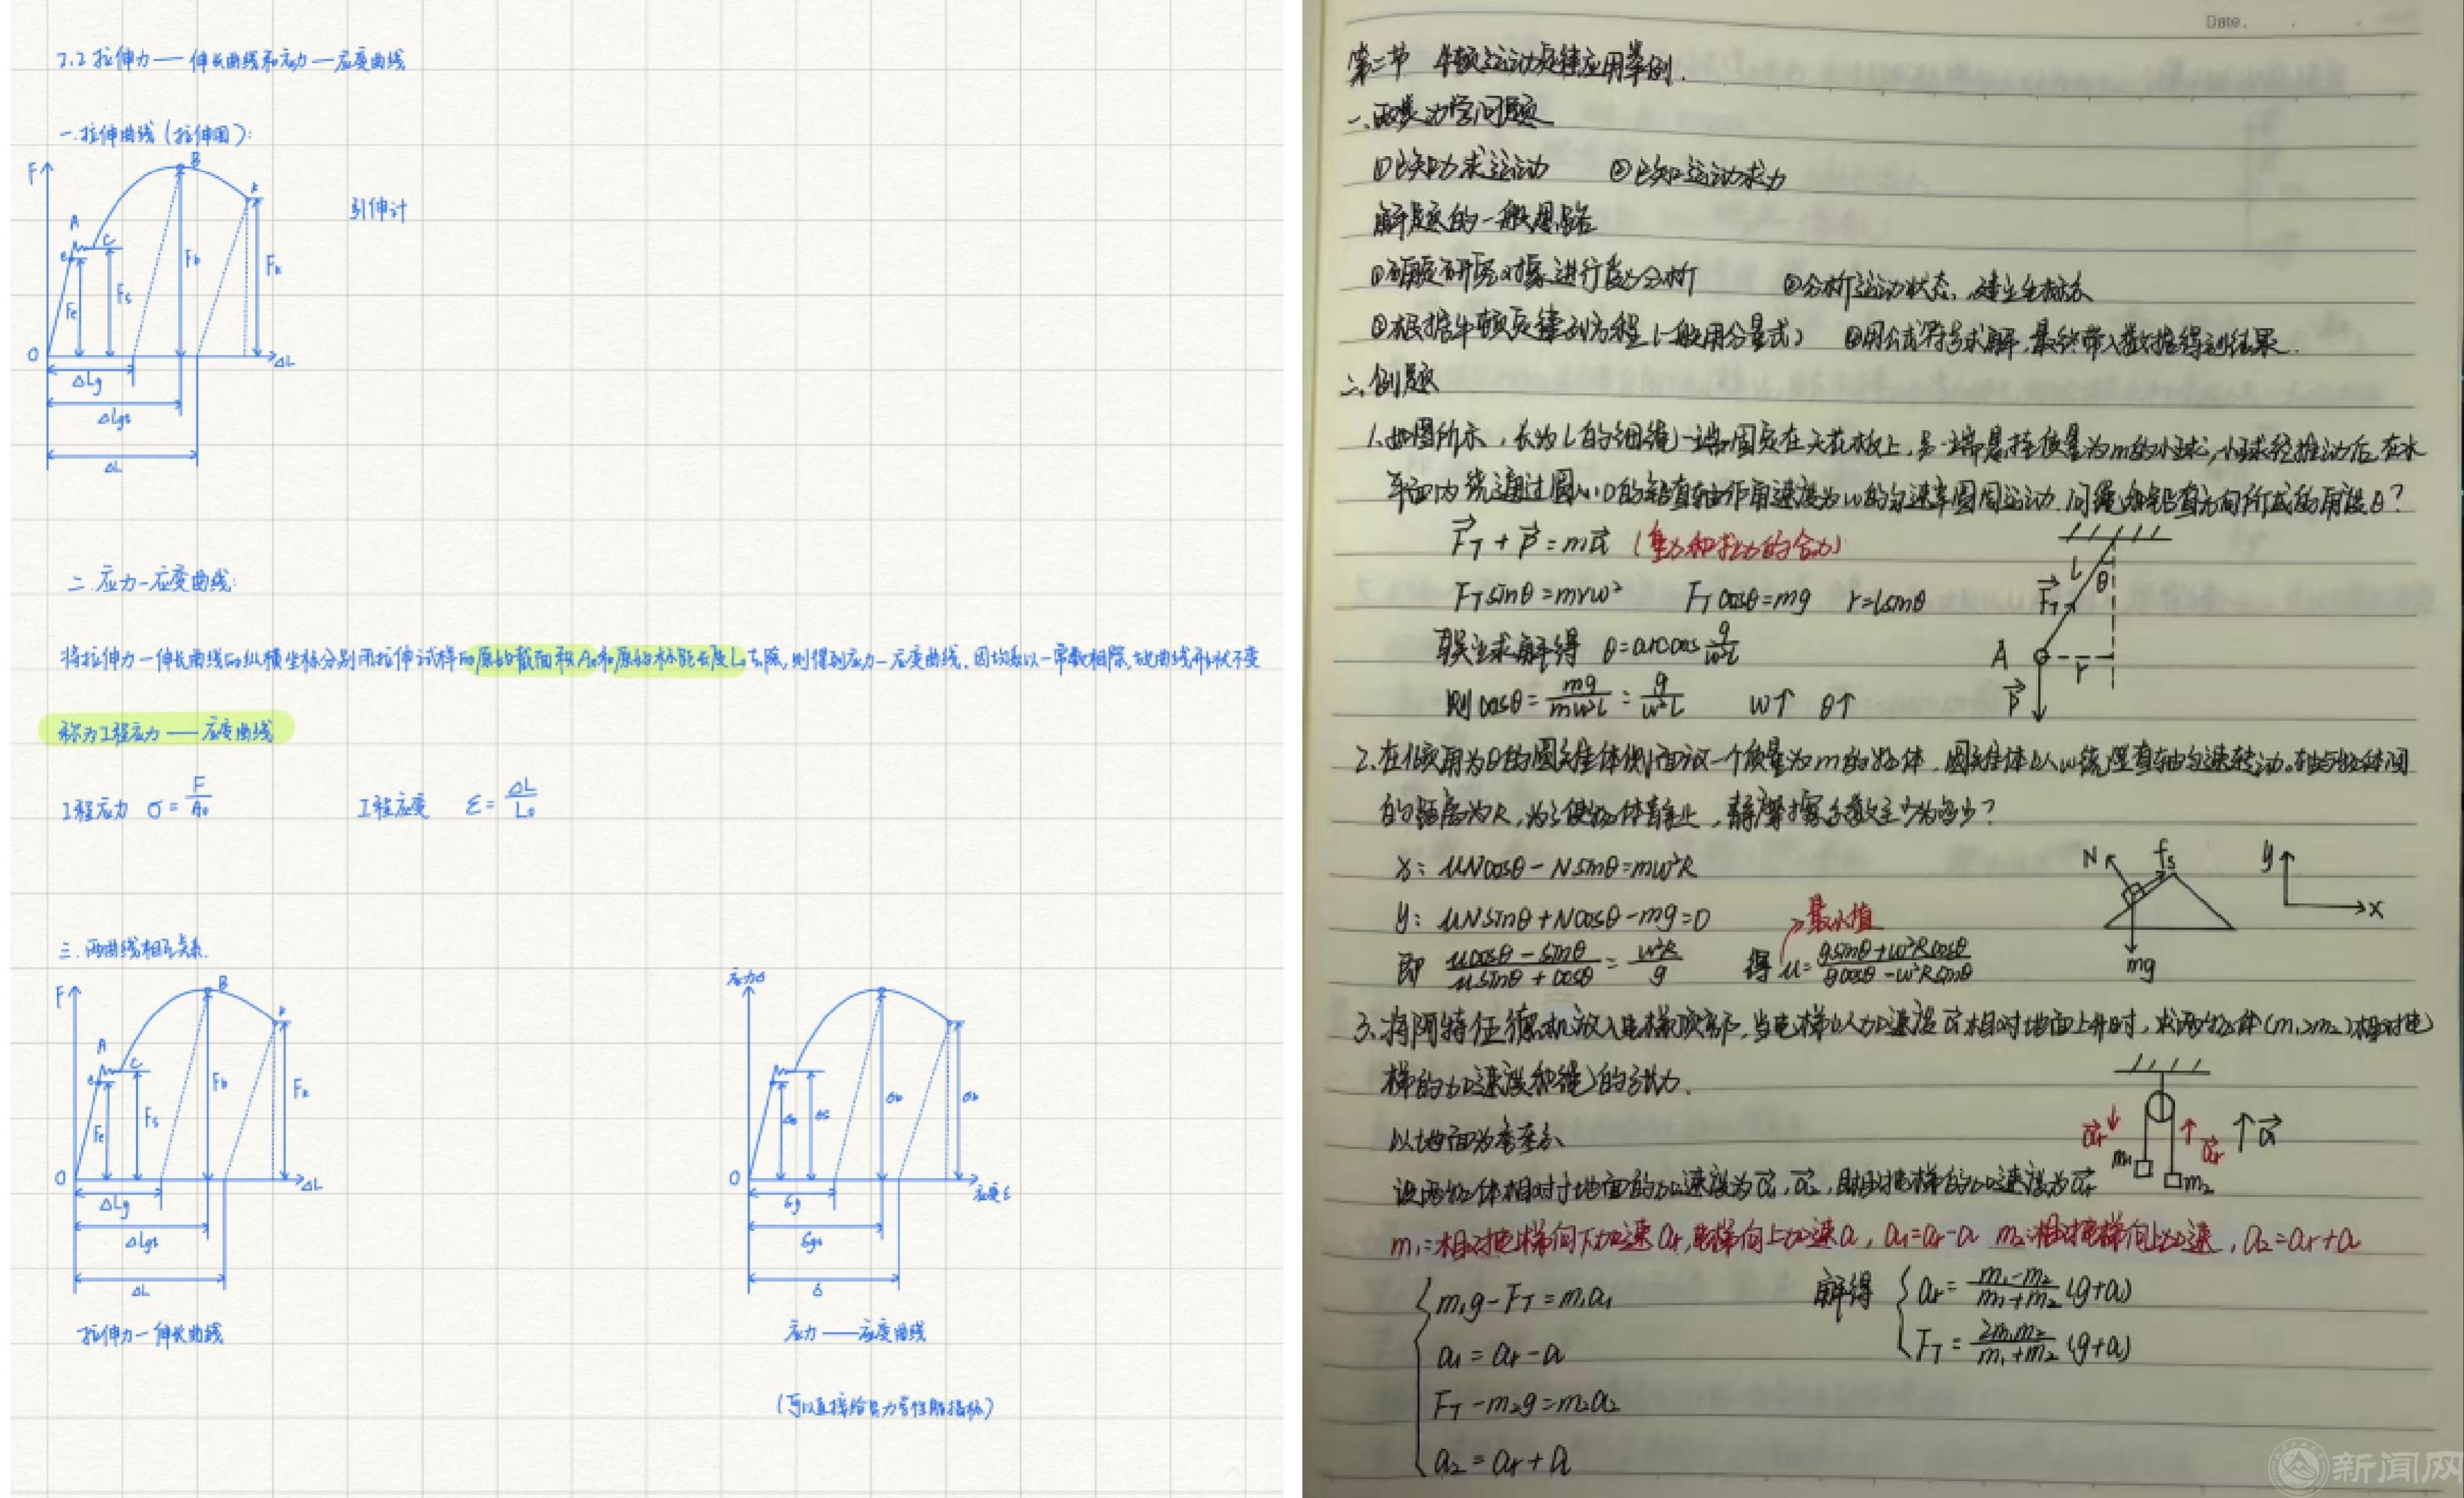 2.2 拉伸力——伸长曲线和应力—应变曲线
一.拉伸曲线(拉伸图):
F
A
e
C
B
k
引伸计
Fe
Fs
Fb
Fk
O
ΔL
ΔLg
ΔLgt
ΔL
二.应力-应变曲线:
将拉伸力—伸长曲线的纵横坐标分别用拉伸试样的原始截面积A₀和原始标距长度L₀去除,则得到应力—应变曲线.因均系以一常数相除,故曲线形状不变
称为工程应力——应变曲线
工程应力 σ=F/A₀ 工程应变 ε=ΔL/L₀
三.两曲线相互关系.
F
A
e
C
B
k
Fe
Fs
Fb
Fk
O
ΔL
ΔLg
ΔLgt
ΔL
拉伸力—伸长曲线
应力σ
O
应变ε
εg
εgt
δ
应力——应变曲线
(可以直接给出力学性能指标)
Date.
第二节 牛顿运动定律应用举例.
一、两类力学问题
①已知力求运动 ②已知运动求力
解题的一般思路
①确定研究对象进行受力分析 ②分析运动状态,建立坐标系
③根据牛顿定律列方程(一般用分量式) ④用公式符号求解,最终带入数据得到结果.
二、例题
1.如图所示,长为L的细绳一端固定在天花板上,另一端悬挂质量为m的小球,小球经推动后,在水
平面内绕通过圆心O的铅直轴作角速度为ω的匀速率圆周运动.问绳和铅直方向所成的角度θ?
F⃗T+P⃗=ma⃗ (重力和拉力的合力)
FTsinθ=mrω² FTcosθ=mg r=lsinθ
联立求解得 θ=arccos g/ω²l
则cosθ=mg/mω²l=g/ω²l ω↑ θ↑
l
θ
F⃗T
A
r
P⃗
2.在顶角为θ的圆锥体侧面放一个质量为m的物体,圆锥体以ω绕竖直轴匀速转动.轴与物体间
的距离为R,为了使物体静止,静摩擦系数至少为多少?
x: μNcosθ-Nsinθ=mω²R
y: μNsinθ+Ncosθ-mg=0
最小值
即 μcosθ-sinθ/μsinθ+cosθ=ω²R/g 得μ=gsinθ+ω²Rcosθ/gcosθ-ω²Rsinθ
N
fs
mg
y
x
3.将阿特伍德机放入电梯顶部,当电梯以加速度a⃗相对地面上升时,求两物体(m₁>m₂)相对电
梯的加速度和绳的张力.
以地面为参考系
设两物体相对于地面的加速度为a⃗₁,a⃗₂,且相对电梯的加速度为a⃗r
a⃗r↓
↑a⃗r
↑a⃗
m₁
m₂
m₁:相对电梯向下加速ar,电梯向上加速a,a₁=ar-a m₂:相对电梯向上加速,a₂=ar+a
m₁g-FT=m₁a₁
a₁=ar-a
FT-m₂g=m₂a₂
a₂=ar+a
解得 ar=m₁-m₂/m₁+m₂(g+a)
FT=2m₁m₂/m₁+m₂(g+a)
新闻网